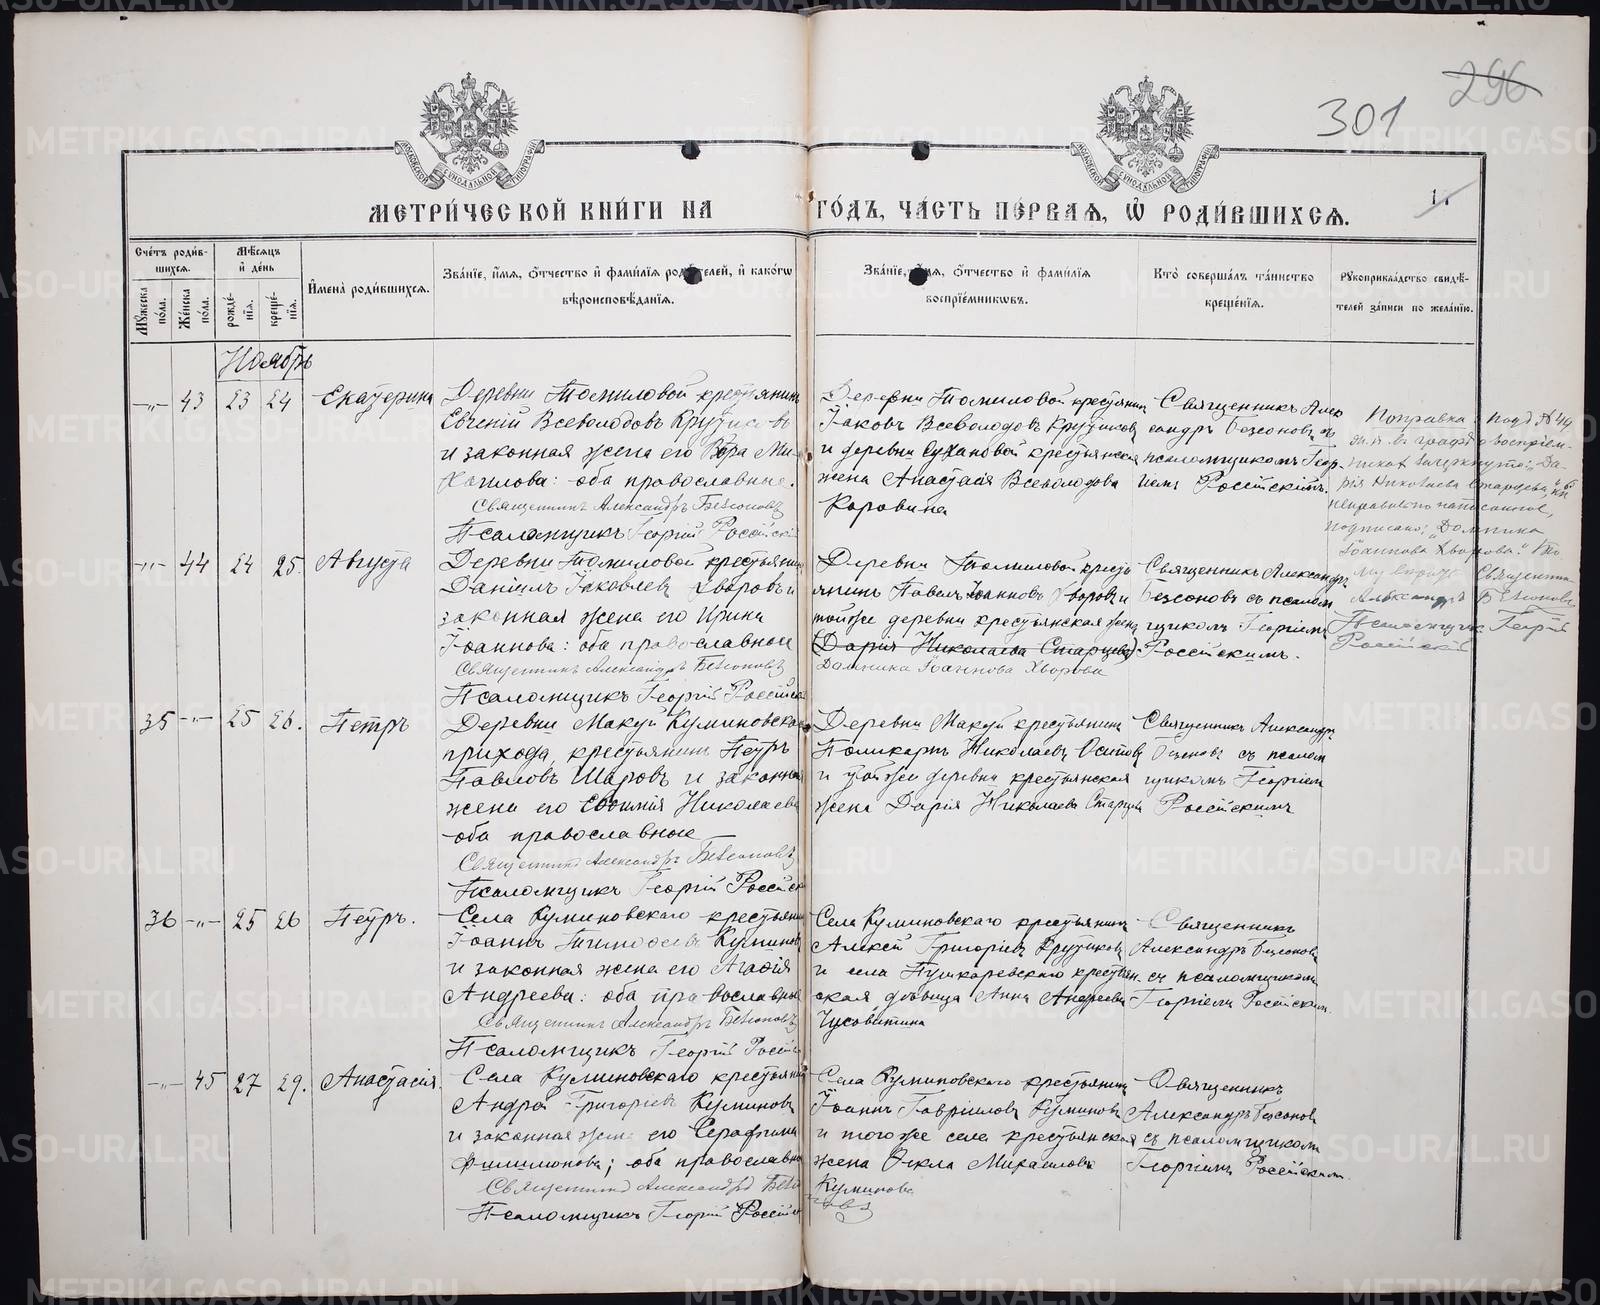 296
301
МЕТРИ́ЧЕСКОЙ КНИ́ГИ НА ГО́ДЪ, ЧА́СТЬ ПЕ́РВАѦ, Ѡ҆ РОДИ́ВШИХСѦ.
Сче́тъ роди́в-
шихсѧ.
Мꙋ́жеска по́ла.
Же́нска по́ла.
Мѣ́сѧцъ
и҆ де́нь
рожде́-
нїѧ.
креще́-
нїѧ.
И҆мена̀ роди́вшихсѧ.
Зва́нїе, и҆́мѧ, ѻ҆́тчество и҆ фами́лїѧ роди́телей, и҆ како́гѡ
вѣроисповѣ́данїѧ.
Зва́нїе, и҆́мѧ, ѻ҆́тчество и҆ фами́лїѧ
воспрїе́мникѡвъ.
Кто̀ соверша́лъ та́инство
креще́нїѧ.
Рꙋкоприкла́дство свидѣ́-
телей за́писи по жела́нїю.
Ноябрь
-„- 43 23 24 Екатерина
Деревни Томиловой крестьянинъ
Евгеній Всеволодовъ Крутиковъ
и законная жена его Вѣра Ми-
хаилова: оба православные.
Священникъ Александръ Безсоновъ
Псаломщикъ Георгій Россійскій
Деревни Томиловой крестьянинъ
Іаковъ Всеволодовъ Крутиковъ
и деревни Сухановой крестьянская
жена Анастасія Всеволодова
Коровина
Священникъ Алек
сандръ Безсоновъ съ
псаломщикомъ Геор-
гіемъ Россійскимъ.
Поправка: подъ № 44
ж.п. въ графѣ о воспріем-
никах зачеркнуто: „Да-
рія Николаева Старцева", какъ
неправильно написанное,
подписано: „Домника
Іоаннова Хворова." То
му вѣрно: Священникъ
Александръ Безсоновъ
Псаломщикъ Георгій
Россійскій
-„- 44 24 25. Августа
Деревни Томиловой крестьянинъ
Даніилъ Іаковлевъ Хворовъ и
законная жена его Ирина
Іоаннова: оба православные
Священникъ Александръ Безсоновъ
Псаломщикъ Георгій Россійскій
Деревни Томиловой кресть
янинъ Павелъ Іоанновъ Хворовъ и
той же деревни крестьянская жена
(Дарія Николаева Старцева)
Домника Іоаннова Хворова
Священникъ Александръ
Безсоновъ съ псалом
щикомъ Георгіемъ
Россійскимъ.
35 -„- 25 26. Петръ
Деревни Макуй Куминовскаго
прихода, крестьянинъ Петръ
Павловъ Шаровъ и законная
жена его Евѳимія Николаева
оба православные
Священникъ Александръ Безсоновъ
Псаломщикъ Георгій Россійскій
Деревни Макуй крестьянинъ
Поликарпъ Николаевъ Осиповъ
и той же деревни крестьянская
жена Дарія Николаева Старцева
Священникъ Александръ
Безсоновъ съ псалом
щикомъ Георгіемъ
Россійскимъ
36 -„- 25 26 Петръ.
Села Куминовскаго крестьянинъ
Іоаннъ Тимоѳеевъ Куминовъ
и законная жена его Агаѳія
Андреева: оба православные
Священникъ Александръ Безсоновъ
Псаломщикъ Георгій Россійскій
Села Куминовскаго крестьянинъ
Алексѣй Григорьевъ Крутиковъ
и села Пушкаревскаго крестьян.
ская дѣвица Анна Андреева
Чусовитина
Священникъ
Александръ Безсоновъ
съ псаломщикомъ
Георгіемъ Россійскимъ.
-„- 45 27 29. Анастасія.
Села Куминовскаго крестьянинъ
Андрей Григорьевъ Куминовъ
и законная жена его Серафима
Филимонова; оба православные
Священникъ Александръ Безсо
Псаломщикъ Георгій Россійскій
Села Куминовскаго крестьянинъ
Іоаннъ Гавриловъ Куминовъ
и того же села крестьянская
жена Ѳекла Михаилова
Куминова
Священникъ
Александръ Безсоновъ
съ псаломщикомъ
Георгіемъ Россійскимъ.
METRIKI.GASO-URAL.RU